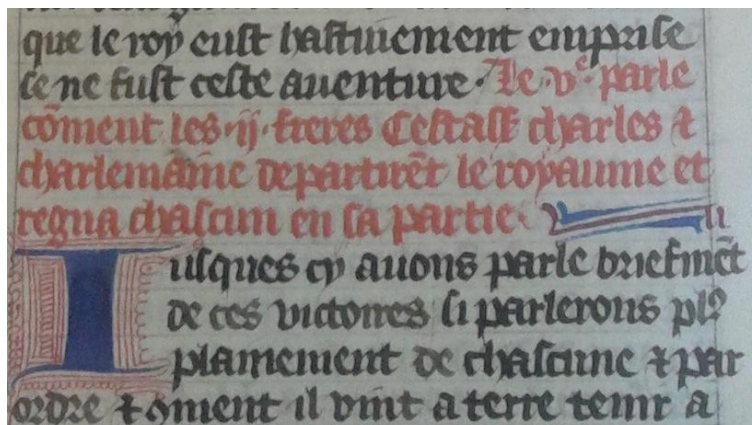 que le roy eust hastiuement emprise
se ne fust ceste auenture. Le .ve. parle
cōment les .ij. freres Cestass charles ⁊
charlemaine departirēt le royaume et
regna chascun en sa partie.
Iusques cy auons parle briefmēt
de ces victoires si parlerons plꝰ
plainement de chascune ⁊ par
ordre ⁊ ꝯment il vint a terre tenir a